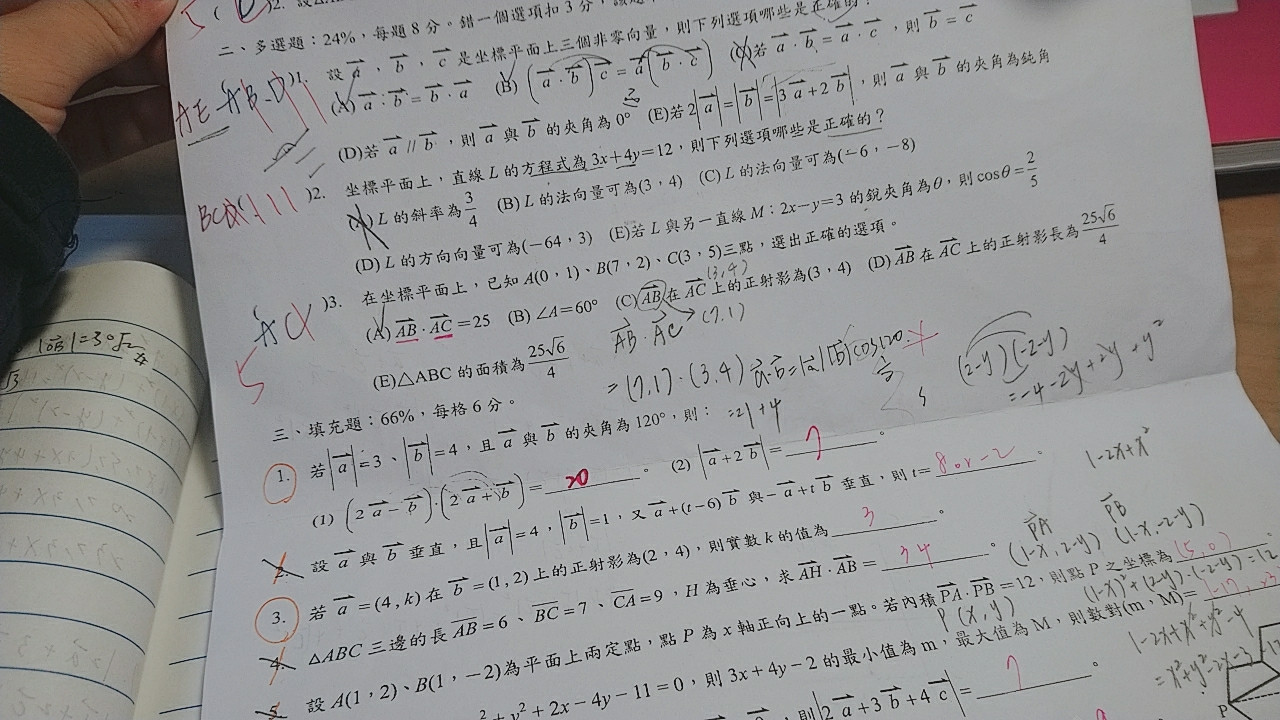 二、多選題：24%，每題 8 分。錯一個選項扣 3 分，
AE A B D )1. 設 a、b、c 是坐標平面上三個非零向量，則下列選項哪些是正確的？
(A) a·b = b·a (B) (a·b)c = a(b·c) (C)若 a·b = a·c，則 b = c
(D)若 a // b，則 a 與 b 的夾角為 0° (E)若 2|a| = |b| = |3a+2b|，則 a 與 b 的夾角為鈍角
BC )2. 坐標平面上，直線 L 的方程式為 3x+4y=12，則下列選項哪些是正確的？
(A) L 的斜率為 3/4 (B) L 的法向量可為(3，4) (C) L 的法向量可為(−6，−8)
(D) L 的方向向量可為(−64，3) (E)若 L 與另一直線 M：2x−y=3 的銳夾角為θ，則 cosθ= 2/5
A C )3. 在坐標平面上，已知 A(0，1)、B(7，2)、C(3，5)三點，選出正確的選項。
(3,4)
(A) AB·AC =25 (B) ∠A=60° (C) AB 在 AC 上的正射影為(3，4) (D) AB 在 AC 上的正射影長為 25√6/4
AB · AC (7,1)
(E)△ABC 的面積為 25√6/4
= (7,1)·(3,4)
a·b=|a||b|cos120
(2-y)(-2-y)
= -4-2y+2y+y²
=21+4
5
三、填充題：66%，每格 6 分。
1. 若|a|=3、|b|=4，且 a 與 b 的夾角為 120°，則：
(1) (2a−b)·(2a+b)= 20 。 (2) |a+2b|= 7 。
1-2x+x²
2. 設 a 與 b 垂直，且|a|=4，|b|=1，又 a+(t−6)b 與−a+tb 垂直，則 t= 8 or -2 。
3. 若 a=(4，k)在 b=(1，2)上的正射影為(2，4)，則實數 k 的值為 3 。
PA PB
(1-x, 2-y) (1-x, -2-y)
4. △ABC 三邊的長 AB=6、BC=7、CA=9，H 為垂心，求 AH·AB= 34 。
5. 設 A(1，2)、B(1，−2)為平面上兩定點，點 P 為 x 軸正向上的一點。若內積 PA·PB=12，則點 P 之坐標為 (5,0) 。
P(x,y)
(1-x)²+(2-y)·(-2-y)=12
+y²+2x−4y−11=0，則 3x+4y−2 的最小值為 m，最大值為 M，則數對(m，M)=
1-2x+x²+y²-4
=x²+y²-2x-3
則|2a+3b+4c|= 7 。
P
|OB|=3